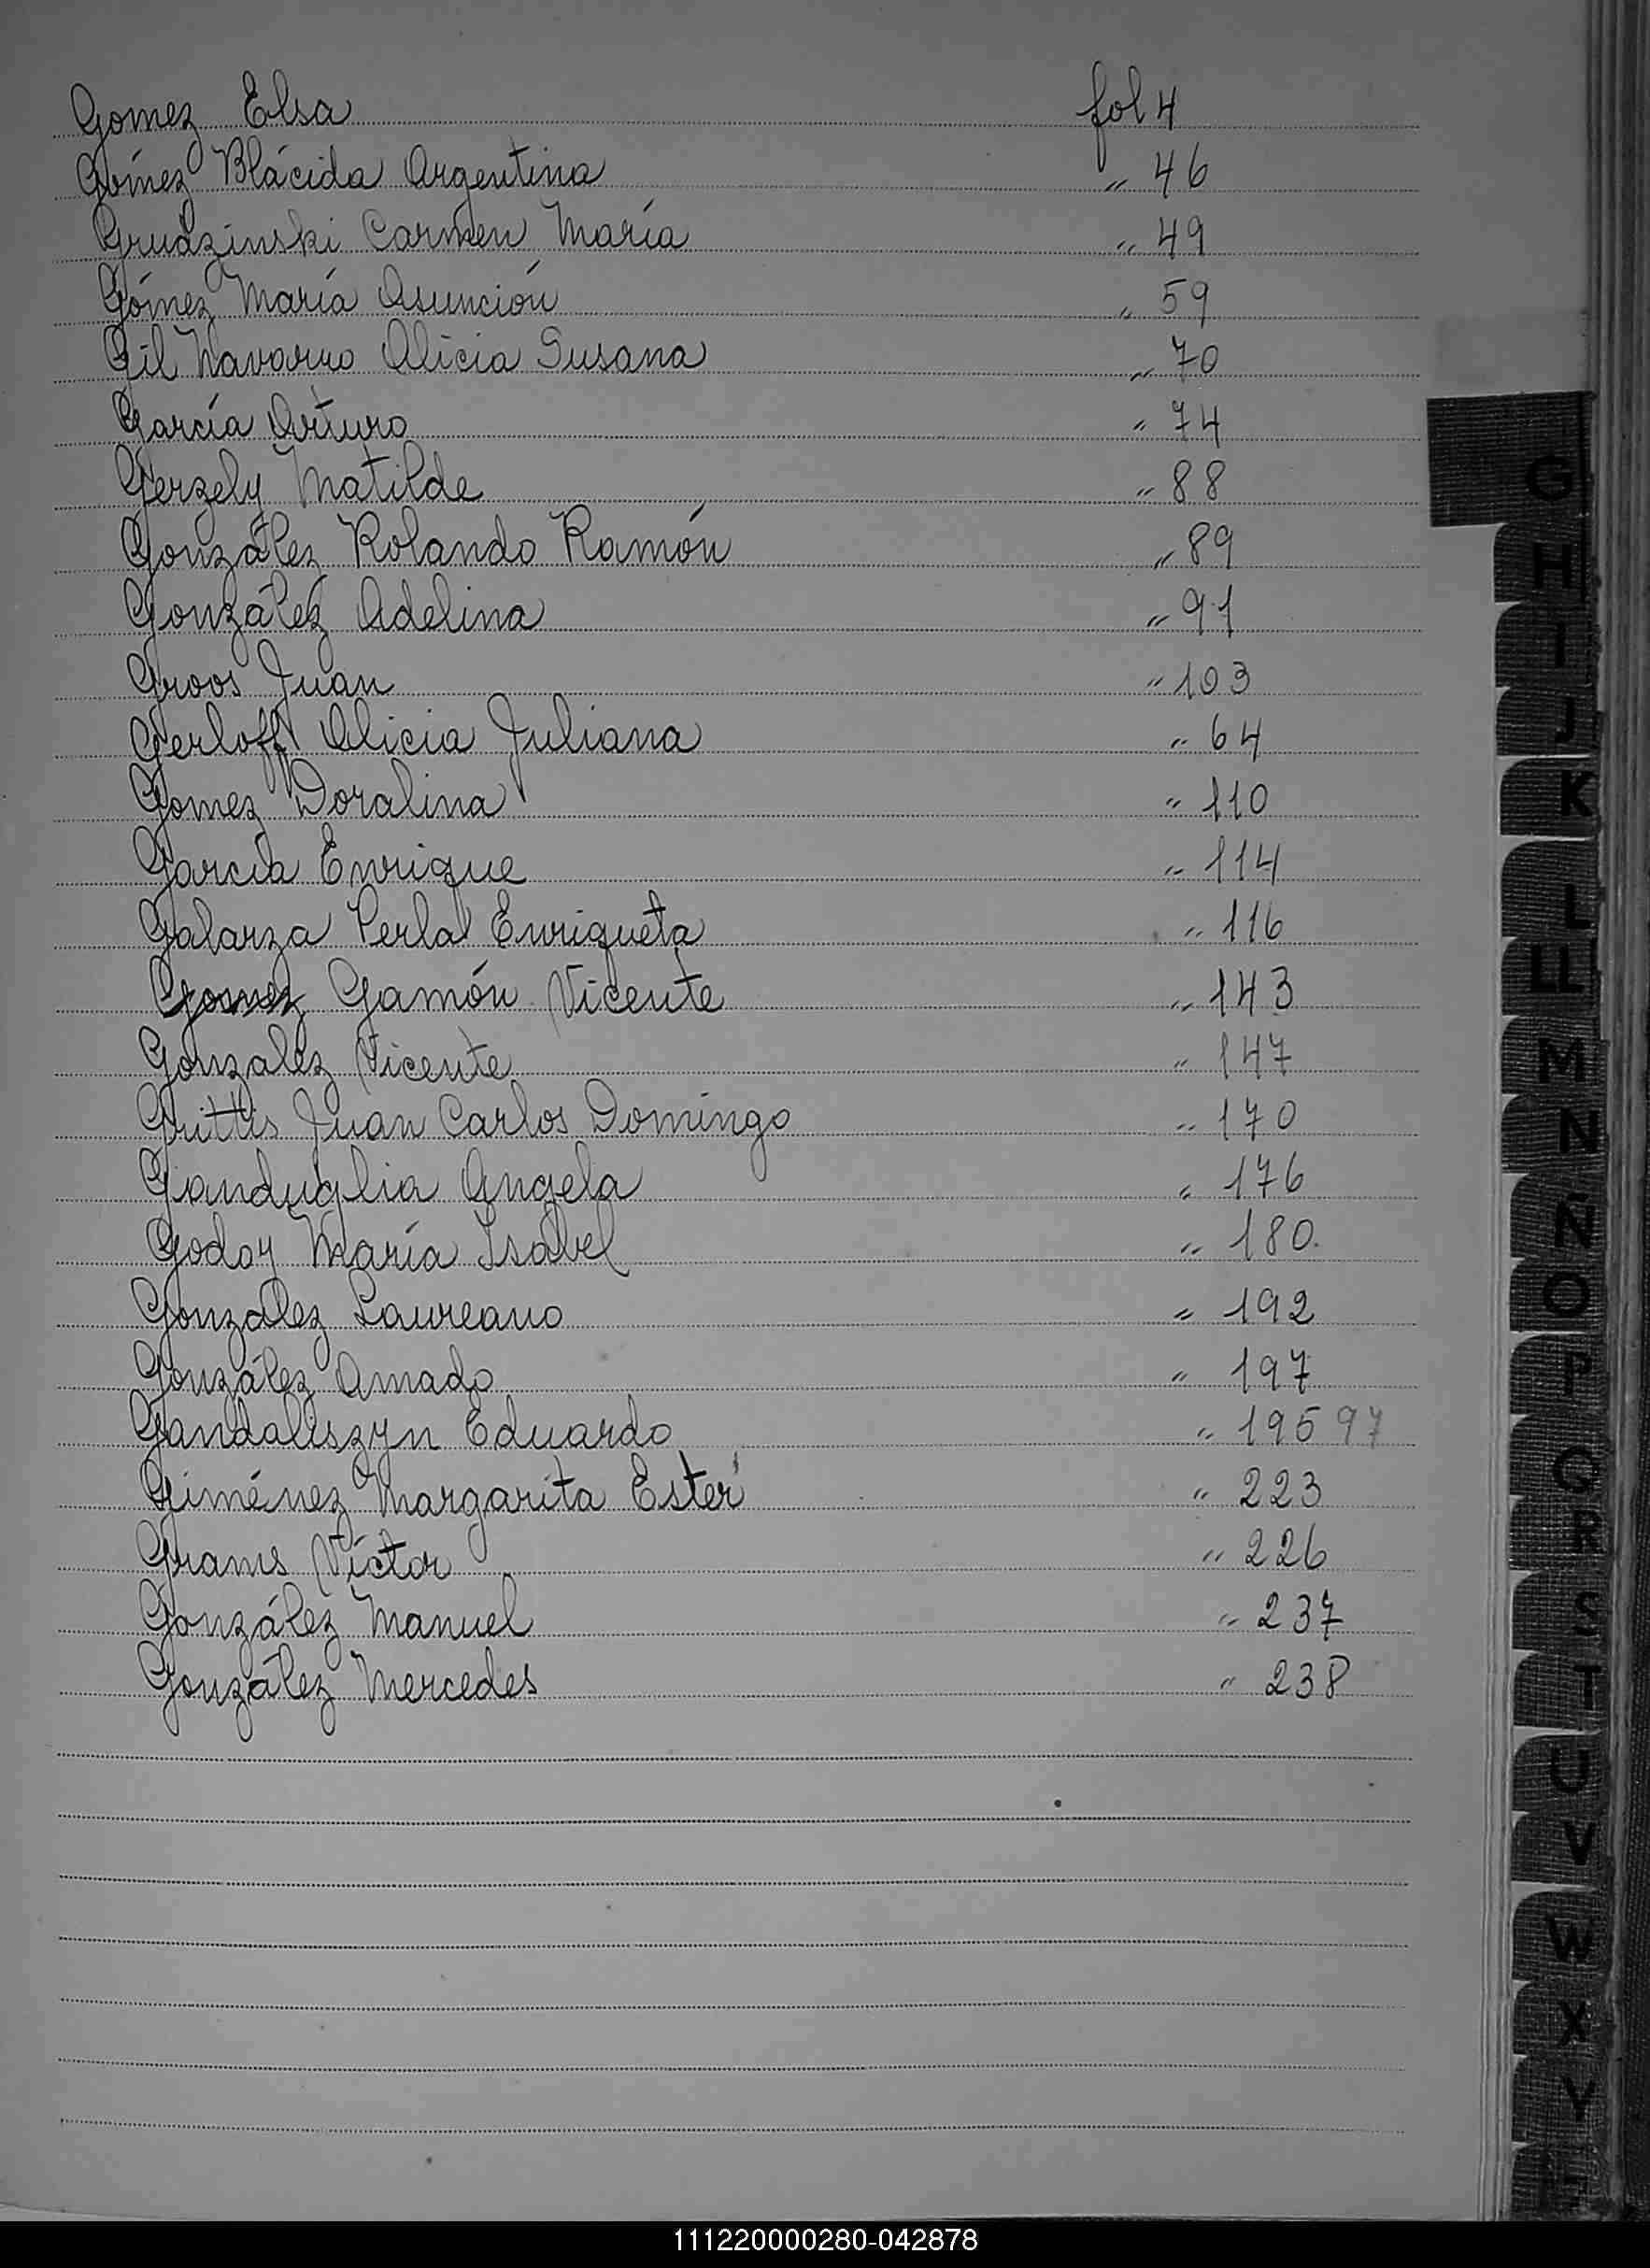 Gomez Elsa fol 4
Gómez Blácida Argentina " 46
Grudzinski Carmen María " 49
Gómez María Asunción " 59
Gil Navarro Alicia Susana " 70
García Arturo " 74
Gerzely Matilde " 88
González Rolando Ramón " 89
González Adelina " 91
Groos Juan " 103
Gerloff Alicia Juliana " 64
Gomez Doralina " 110
García Enrique " 114
Galarza Perla Enriqueta " 116
Gamón Vicente " 143
Gonzalez Vicente " 147
Grittis Juan Carlos Domingo " 170
Gianduglia Angela " 176
Godoy María Isabel " 180.
González Laureano " 192
González Amado " 197
Gandaliszyn Eduardo " 195 97
Giménez Margarita Ester " 223
Grams Víctor " 226
González Manuel " 237
González Mercedes " 238
G
H
I
J
K
L
LL
M
N
Ñ
O
P
Q
R
S
T
U
V
W
X
Y
111220000280-042878